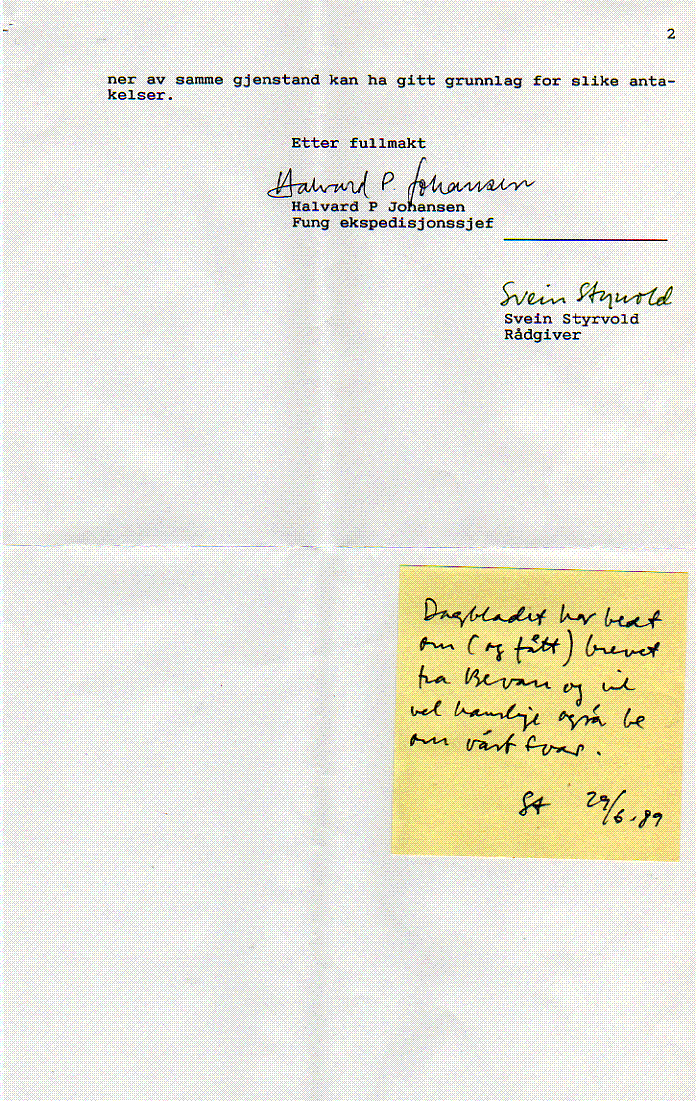 2
ner av samme gjenstand kan ha gitt grunnlag for slike anta-
kelser.
Etter fullmakt
Halvard P. Johansen
Halvard P Johansen
Fung ekspedisjonssjef
Svein Styrvold
Svein Styrvold
Rådgiver
Dagbladet har bedt
om (og fått) brevet
fra Bevan og vil
vel kanskje også be
om vårt svar.
29/6-89